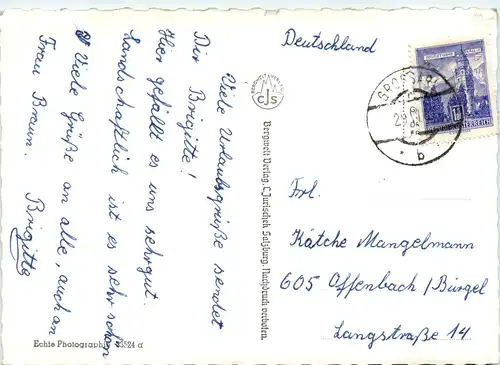 Viele Urlaubsgrüße sendet
Dir Brigitte!
Hier gefällt es uns sehr gut.
Landschaftlich ist es sehr schön
Viele Grüße an alle, auch an
Frau Braun. Brigitte
Echte Photographie 45524 a
CJS
Bergwelt Verlag, C. Jurischek Salzburg, Nachdruck verboten.
Deutschland
b
Frl.
Kätche Mangelmann
605 Offenbach/Bürgel
Langstraße 14